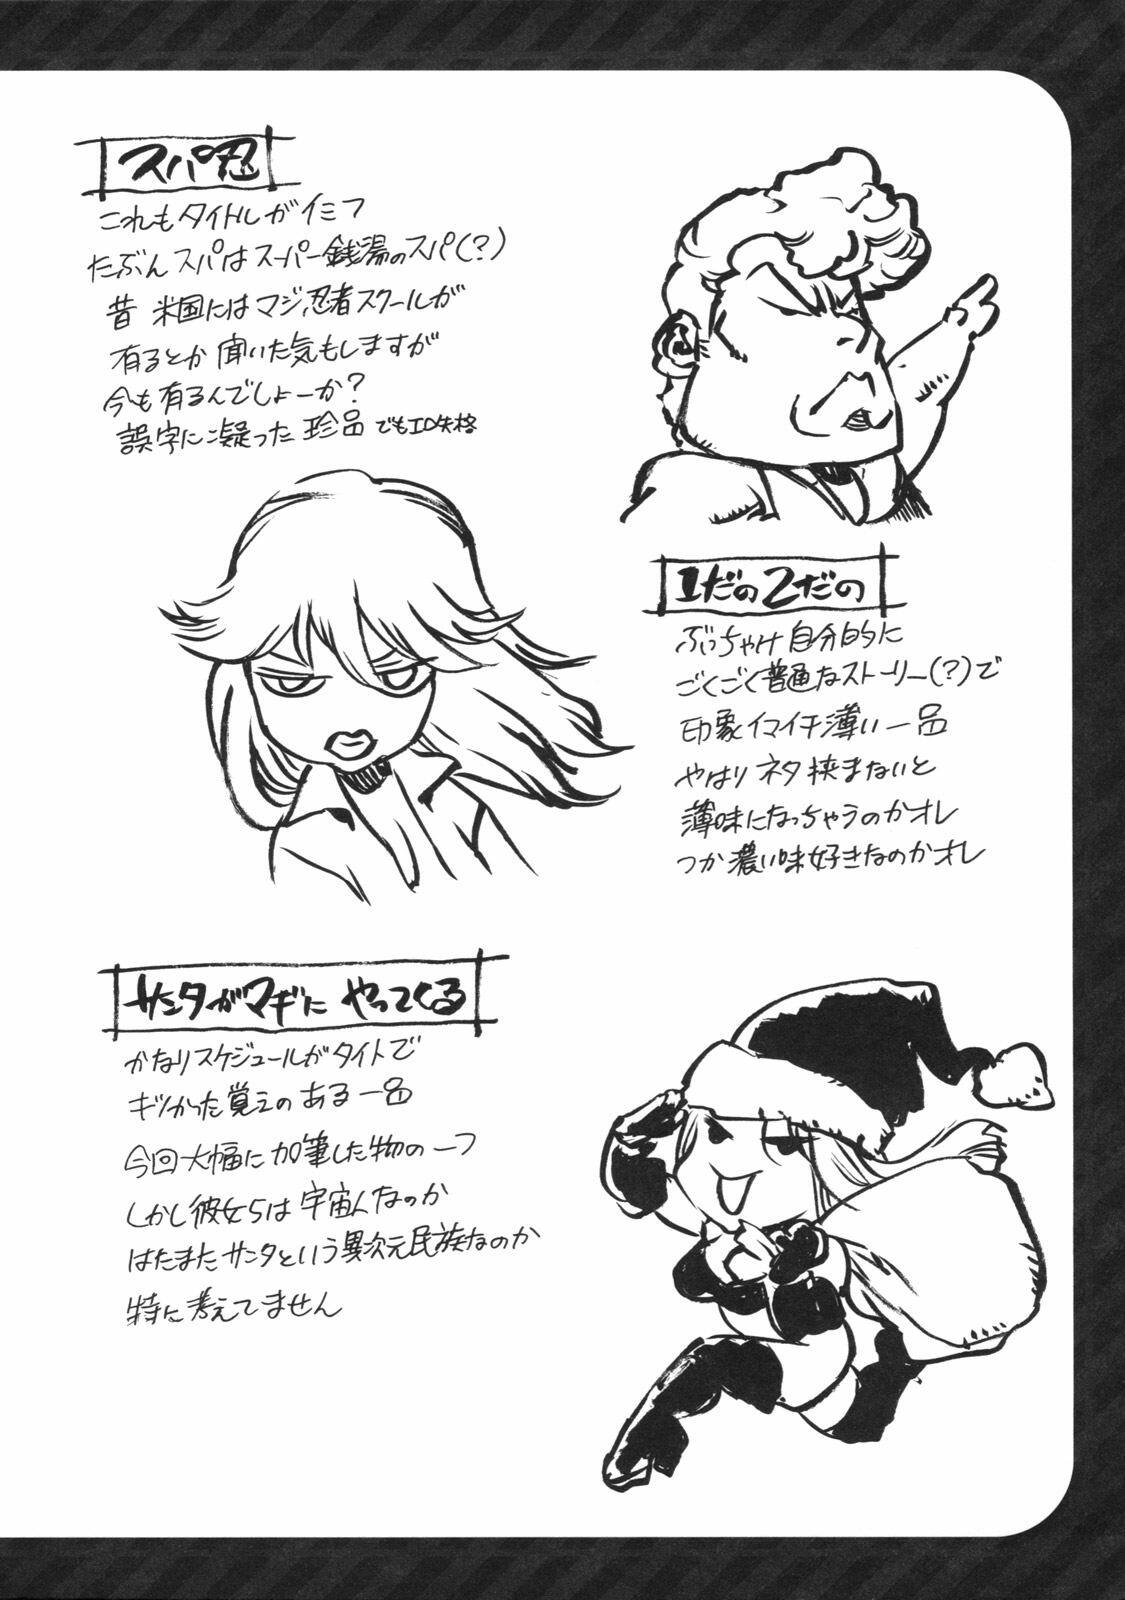 スパ忍
これもタイトルがイミフ
たぶんスパはスーパー銭湯のスパ(?)
昔 米国にはマジ忍者スクールが
有るとか聞いた気もしますが
今も有るんでしょーか?
誤字に凝った珍品 でもエロ失格
1だの2だの
ぶっちゃけ自分的に
ごくごく普通なストーリー(?)で
印象イマイチ薄い一品
やはりネタ挟まないと
薄味になっちゃうのかオレ
つか濃い味好きなのかオレ
サンタがマギにやってくる
かなりスケジュールがタイトで
キツかった覚えのある一品
今回大幅に加筆した物の一つ
しかし彼女らは宇宙人なのか
はたまたサンタという異次元民族なのか
特に考えてません